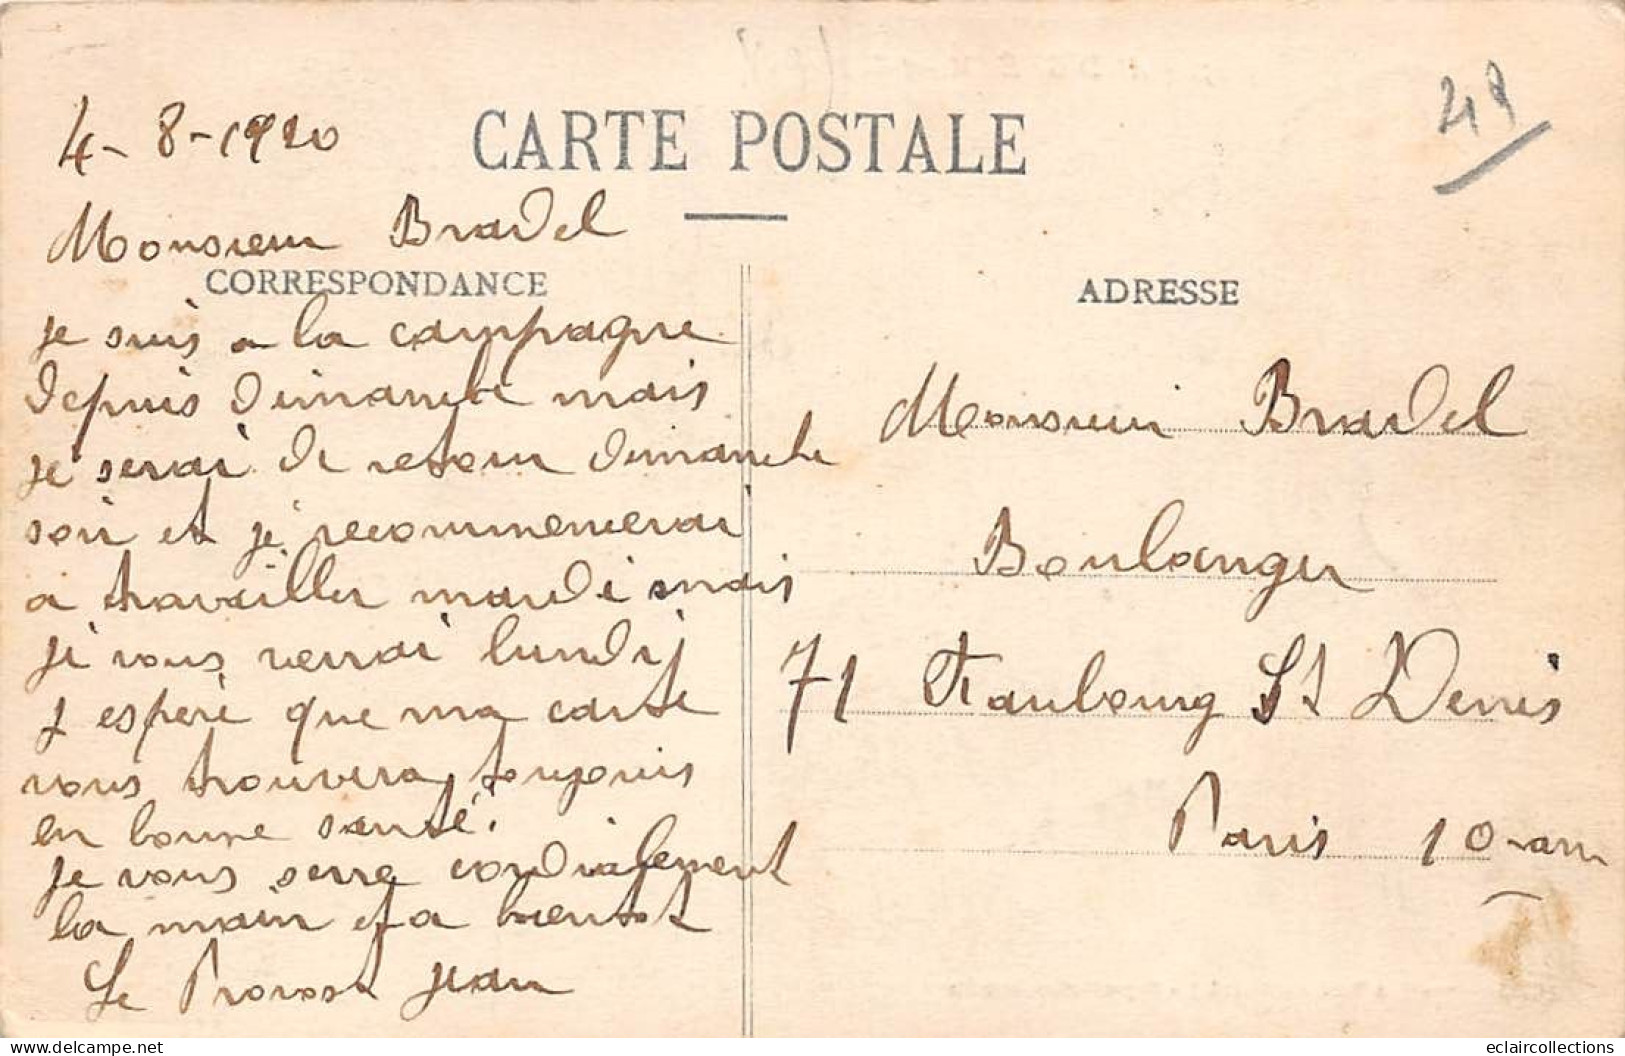 49
4-8-1920
CARTE POSTALE
Monsieur Bradel
CORRESPONDANCE
je suis a la campagne
depuis dimanche mais
je serai de retour dimanche
soir et je recommencerai
a travailler mardi mais
je vous verrai lundi
j espère que ma carte
vous trouvera toujours
en bonne santé.
je vous serre cordialement
la main et a bientot
Le Provost jean
ADRESSE
Monsieur Bradel
Boulanger
71 Faubourg St Denis
Paris 10 am
delcampe.net
eclaircollections